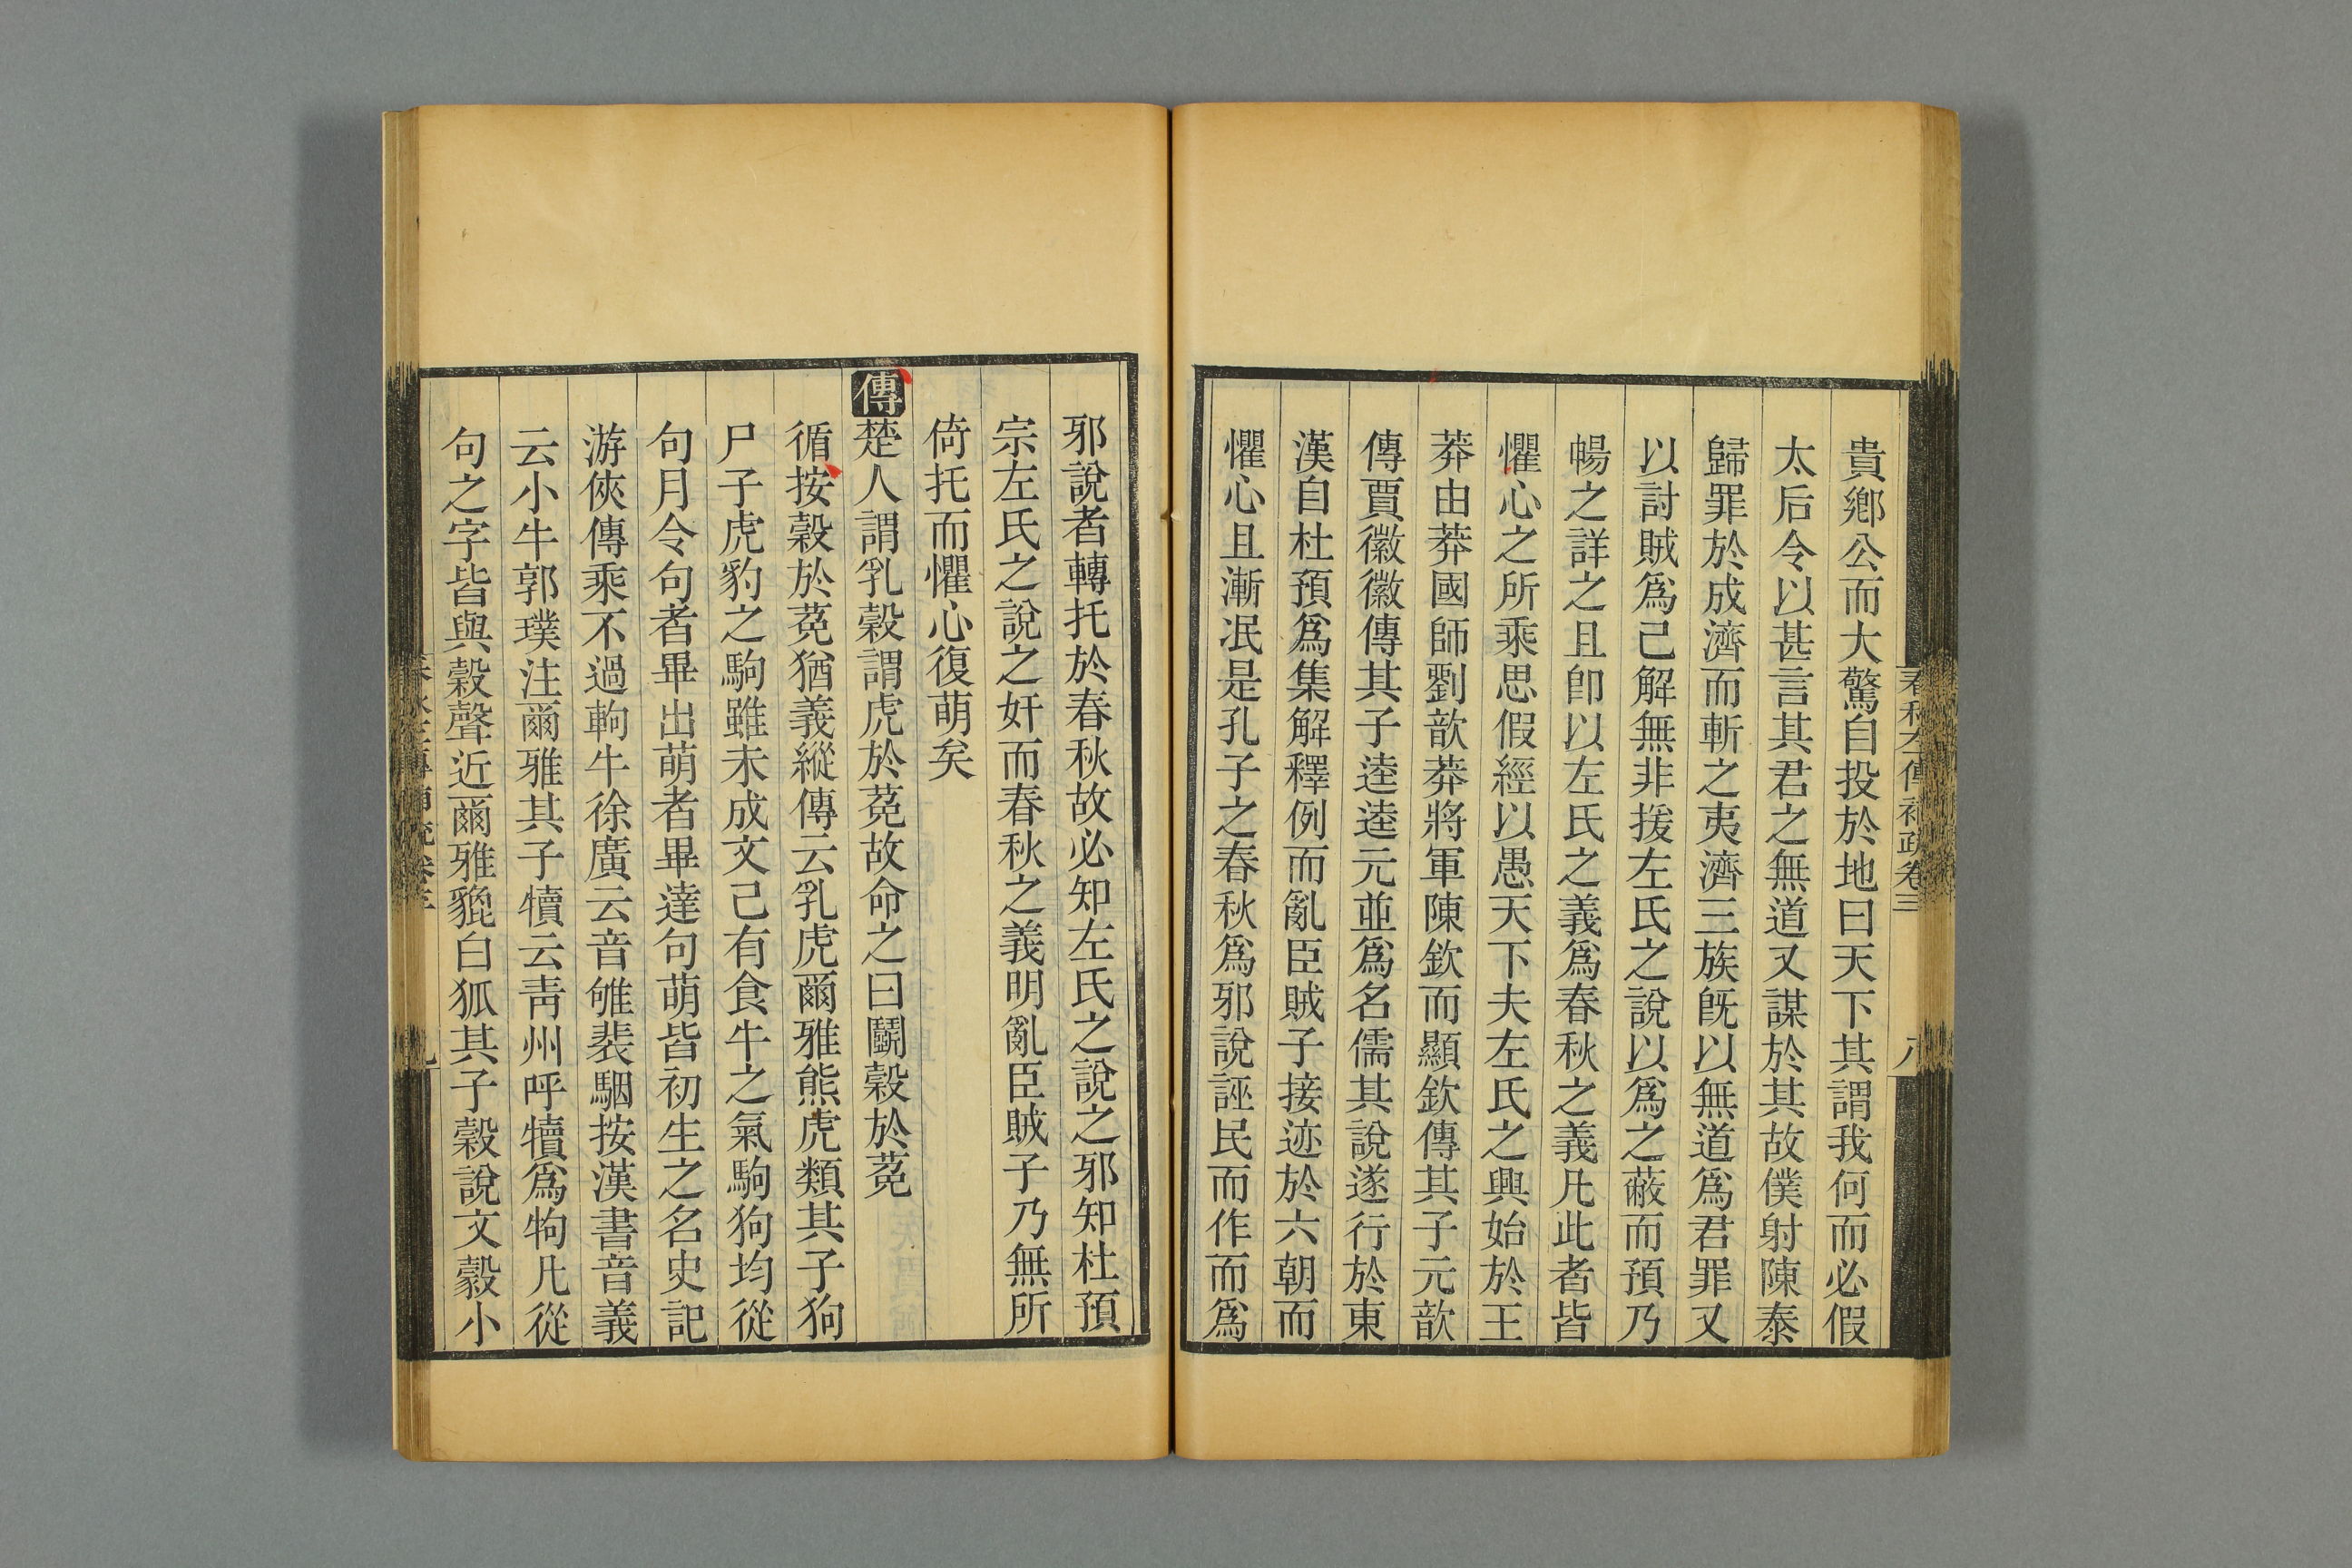 貴鄉公而大驚自投於地曰天下其謂我何而必假
太后令以甚言其君之無道又謀於其故僕射陳泰
歸罪於成濟而斬之夷濟三族旣以無道爲君罪又
以討賊爲己解無非援左氏之說以爲之蔽而預乃
暢之詳之且卽以左氏之義爲春秋之義凡此者皆
懼心之所乘思假經以愚天下夫左氏之興始於王
莽由莽國師劉歆莽將軍陳欽而顯欽傳其子元歆
傳賈徽徽傳其子逵逵元並爲名儒其說遂行於東
漢自杜預爲集解釋例而亂臣賊子接迹於六朝而
懼心且漸泯是孔子之春秋爲邪說誣民而作而爲
邪說者轉托於春秋故必知左氏之說之邪知杜預
宗左氏之說之奸而春秋之義明亂臣賊子乃無所
倚托而懼心復萌矣
傳楚人謂乳穀謂虎於菟故命之曰鬬穀於菟
循按穀於菟猶義縱傳云乳虎爾雅熊虎類其子狗
尸子虎豹之駒雖未成文己有食牛之氣駒狗均從
句月令句者畢出萌者畢達句萌皆初生之名史記
游俠傳乘不過軥牛徐廣云音雊裴駰按漢書音義
云小牛郭璞注爾雅其子犢云靑州呼犢爲牰凡從
句之字皆與穀聲近爾雅貔白狐其子穀說文豰小
春秋左傳補疏卷三
八